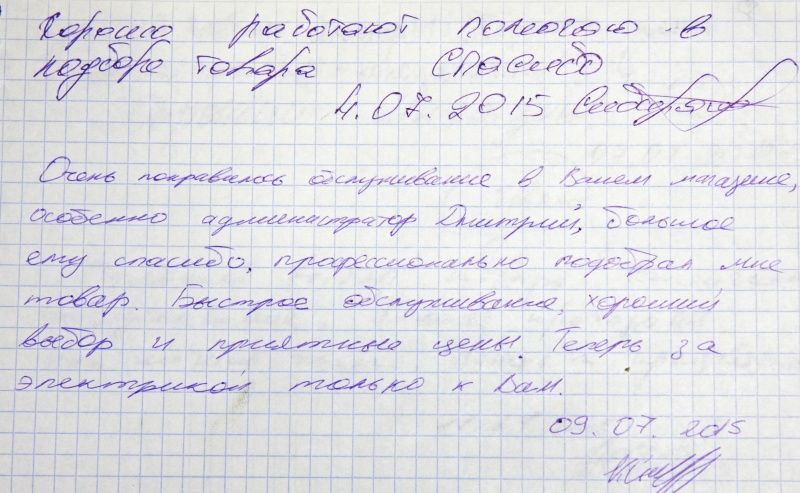 Хорошо работают помогаю в
подборе товара СПАСИБО
4.07.2015
Очень понравилось обслуживание в Вашем магазине,
особенно администратор Дмитрий, большое
ему спасибо, профессионально подобрал мне
товар. Быстрое обслуживание, хороший
выбор и приятные цены. Теперь за
электрикой только к Вам.
09.07.2015